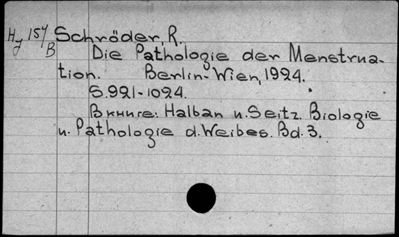 Hy 157/B Schröder, R.
Die Pathologie der Menstrua-
tion. Berlin-Wien, 1924.
S. 921-1024.
В книге: Halban u. Seitz. Biologie
u. Pathologie d. Weibes. Bd. 3.